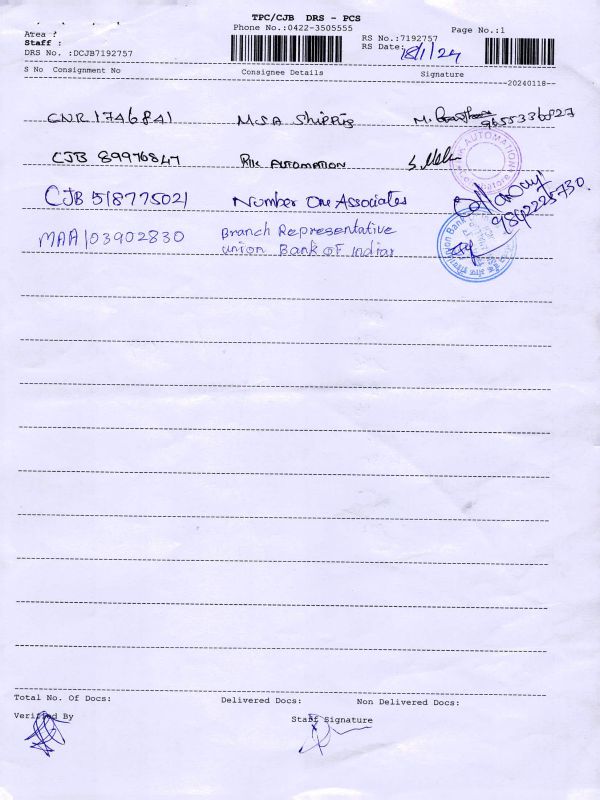 TPC/CJB DRS - PCS
Phone No.:0422-3505555
Page No.:1
Area :
Staff :
RS No.:7192757
RS Date: 18/1/24
DRS No. :DCJB7192757
S No Consignment No Consignee Details Signature
20240118
CNR1746841 MSA Shippig M. 9655336827
CJB 89976847 RK AUTOMATION S.
AUTOMATION
CJB 518775021 Number One Associates
9892225730.
MAA103902830 Branch Representative
union Bank of Indian
Union Bank
Total No. Of Docs: Delivered Docs: Non Delivered Docs:
Verified By Staff Signature